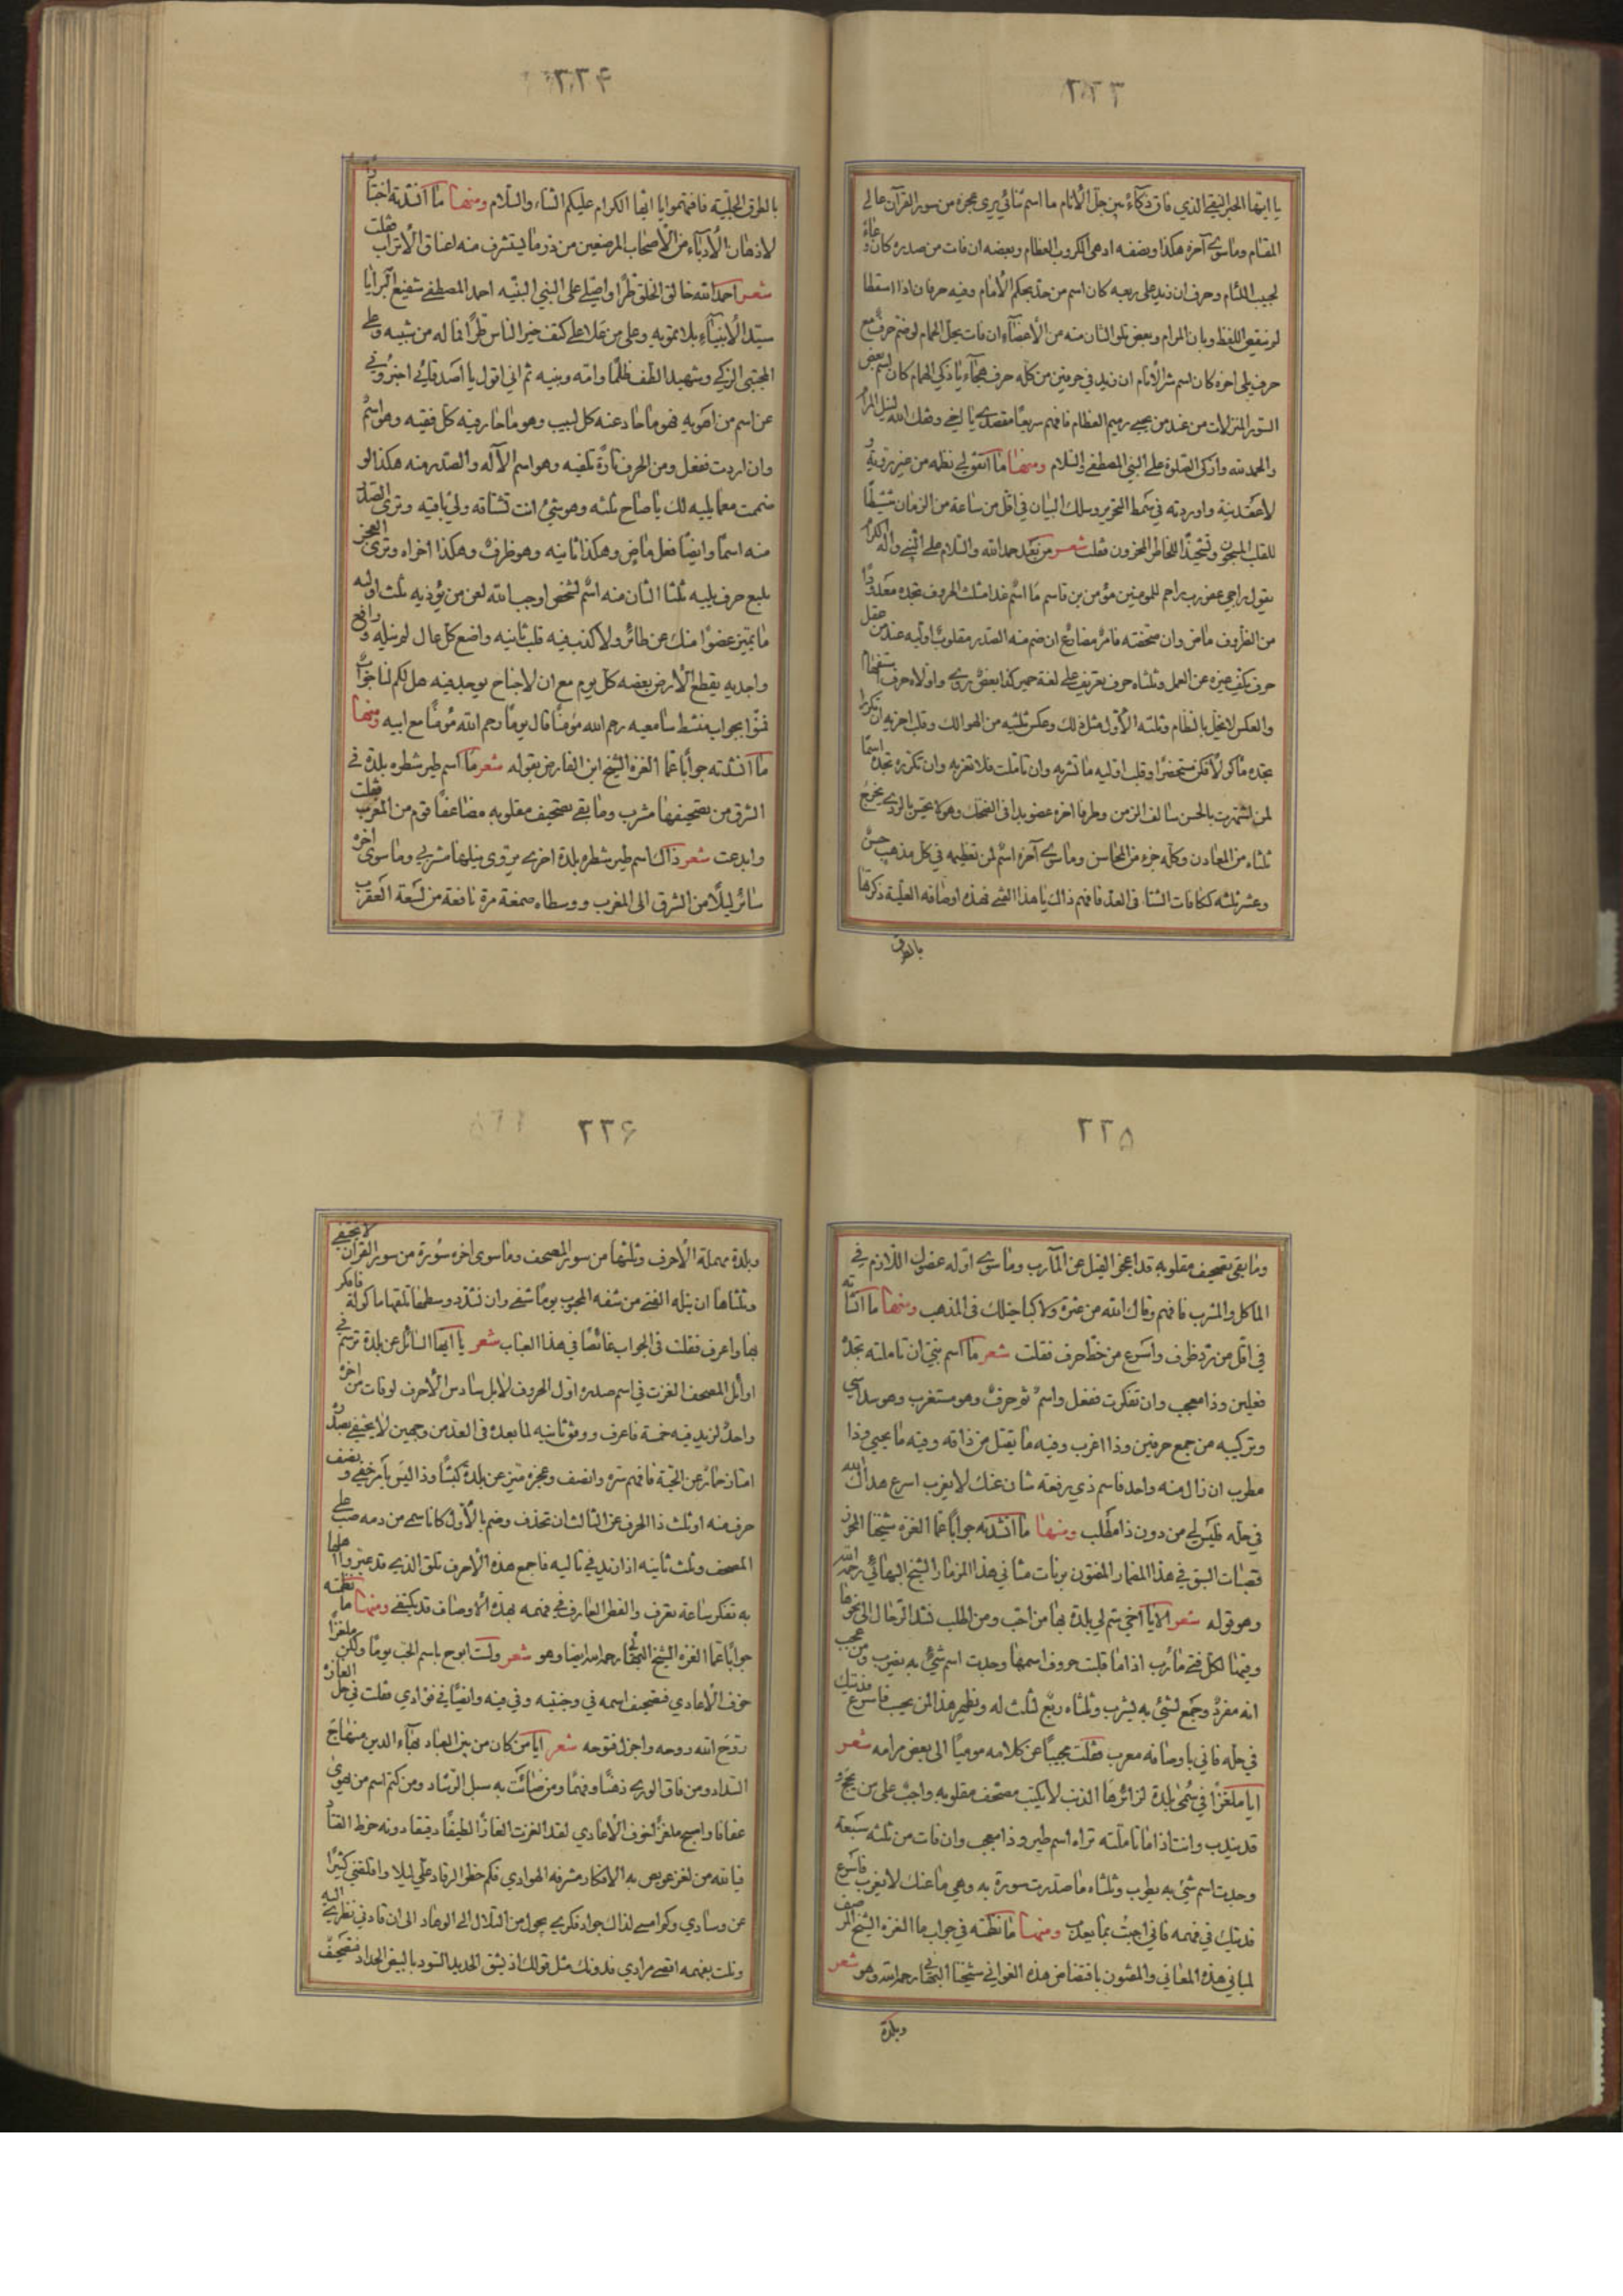 ٢٢٣
يا ايها الحبر النقي الذي فاق ذكاء بين جل الأنام ما اسم ثنائي يرى عجزه من سور القرآن عالي
المقام وما سوى آخره هكذا ونصفه ادهى الكروب العظام وبعضه ان فات من صدره كان وعاء
لجيب اللئام وحرف ان زيد على ربعه كان اسم من حد بحكم الأنام وفيه حرفان اذا اسقطا
لم ينقص اللفظ وبان المرام وبعض تلو الثان منه من الأعضاء ان فات يحل الحمام لو ضم حرف مع
حرف يلي اخره كان اسم شر الأنام ان زيد في حرفين من كله حرف هجاء يا ذكي الهمام كان اسم بعض
السور المنزلات من عند من يحيي رميم العظام فافهم سريعا مقصدي يا اخي وفقك الله لنيل المرام
والحمد لله وازكى الصلوة على النبي المصطفى والسلام ومنها ما اتفق لي نظمه من غير روية و
لا عقد نية واوردته في سمط التحرير وسلك البيان في اقل من ساعة من الزمان تنشيطا
للقلب المسجون وتشحيذا للخاطر المحزون فقلت شعر من بعد حمد الله والسلام على النبي واله الكرام
يقول راجي عفو رب راحم للمومنين مؤمن بن قاسم ما اسم غدا مثلث الحروف تجده معدودا
من الظروف ماض وان صحفته فامر مضارع ان ضم منه الصدر مقلوب اوليه عند من عقل
حرف يكف غيره عن العمل وثلثاه حرف تعريف على لغة حمير كذا بعض روى واولاه حرف استفهام
والعكس لا يخل بالنظام وثلثه الأول مثل ذلك وعكس ثلثيه من الهوالك وقلب اخريه ان تكررا
تجده ماكولا فكن مستحضرا وقلب اوليه ما تشربه وان تاملت فلا تقربه وان تكرره تجده اسما
لمن اشتهرت بالحسن سالف الزمن وطرفا اخره عضو بدا في الضحك وهو لا يحتس بالردى يخرج
ثلثاه من المعادن وكله جزء من المحاسن وما سوى آخره اسم لمن تعظيمه في كل مذهب حسن
وعشر ثلثه ككافات الشتا في العد فافهم ذاك يا هذا الفتى فهذه اوصافه العلية ذكرتها
بالطرق
٢٢۴
بالطرق الجلية فافهموا يا ايها الكرام عليكم الثناء والسلام ومنها ما انشدته اختبارا
لاذهان الأدباء من الأصحاب المرضعين من در ما يتشرف منه اعناق الأتراب فقلت
شعر احمد الله خالق الخلق طرا واصلي على النبي النبيه احمد المصطفى شفيع البرايا
سيد الأنبياء بلا تمويه وعلى من علا على كتف خير الناس طرا فما له من شبيه وعلى
المجتبى الزكي وشهيد الطف ظلما وامه وبنيه ثم اني اقول يا اصدقائي اخبروني
عن اسم من اهويه فهو ما حاد عنه كل لبيب وهو ما حار فيه كل فقيه وهو اسم
وان اردت ففعل ومن الحرف تارة تلفيه وهو اسم الآله والصدر منه هكذا لو
ضممت معما يليه لك يا صاح ثلثه وهو شيء انت تشتاقه ولي باقيه وترى الصدر
منه اسما وايضا فعل ماض وهكذا ثانيه وهو ظرف وهكذا اخراه وترى العجز
بلبع حرف يليه ثلثا الثان منه اسم لشخص اوجب الله لعن من يؤذيه ثلث اوليه
ما يميز عضوا منك عن طائر ولا كذب فيه قلب ثانيه واضع كل عال لم ينله ورافع
واجديه يقطع الأرض بعضه كل يوم مع ان لا جناح يوجد فيه هل لكم لنا جواب
نموا بجواب منشط سامعيه رحم الله مؤمنا قال يوما رحم الله مؤمنا مع ابيه ومنها
ما انشدته جوابا عما الغزه الشيخ ابن الفارض بقوله شعر ما اسم طير شطره بلدة في
الشرق من تصحيفها مشرب وما بقي تصحيف مقلوبه مضاعفا قوم من المغرب فقلت
وابدعت شعر ذاك اسم طير شطره بلدة اخرى يروي نيلها مشربي وما سوى اخره
سائر ليلا من الشرق الى المغرب ووسطاه صمغة مرة نافعة من لسعة العقرب
٢٢۵
وما بقي تصحيف مقلوبه قد اعجز الفيل عن المآرب وما سوى اوله عضوك اللازم في
الماكل والمشرب فافهم وقاك الله من عثرة ولا كبا خيلك في المذهب ومنها ما انشاته
في اقل من رد طرف واسرع من خط حرف فقلت شعر ما اسم شيء ان تاملته تجده
فعلين وذا معجب وان تفكرت ففعل واسم ثم حرف وهو مستغرب وهو سداسي
وتركيبه من جمع حرفين وذا اغرب وفيه ما يقتل من ذاقه وفيه ما يحيي وذا
مطرب ان زال منه واحد فاسم ذي رفعة شان عنك لا يغرب اسرع هداك الله
في حله فليس لي من دون ذا مطلب ومنها ما انشدته جوابا عما الغزه شيخنا المحرز
قصبات السبق في هذا المضمار المفتون برنات مثاني هذا المزمار الشيخ البهائي رحمه الله
وهو قوله شعر الا يا اخي سم لي بلدة بها من احب ومن اطلب تشد الرحال الى نحوها
وفيها لكل فتى مارب اذا ما قلبت حروف اسمها وجدت اسم شيء به يضرب ومن عجب
انه مفرد وجمع لشيء به يشرب وثلثاه ربع لثلث له ونظير هذا لمن يحسب فاسرع فديتك
في حله فاني باوصافه معرب فقلت مجيبا عن كلامه موميا الى بعض مرامه شعر
ايا ملغزا في سمى بلدة لزائرها الذنب لا يكتب مصحف مقلوبه واجب على من يحج و
قد يندب وانت اذا ما تاملته تراه اسم طير وذا معجب وان فات من ثلثه سبعة
وجدت اسم شيء به يطرب وثلثاه ما صدرت سورة به وهي ما عنك لا يغرب فاسرع
فديتك في فهمه فاني اجبت بما يعرب ومنها ما نظمته في جواب ما الغزه الشيخ المرصف
لمباني هذه المعاني والمفتون بافتضاض هذه الغواني شيخنا البهائي رحمه الله وهو شعر
وبلدة
٢٢۶
وبلدة مهملة الأحرف وثلثها من سور المصحف وما سوى اخره سورة من سور القران لا تختفي
وثلثاها ان ينله الفتى من شفه المحبوب يوما شفي وان تشدد وسطها تلقها ماكولة فافكر
بها واعرف فقلت في الجواب غائصا في هذا العباب شعر يا ايها السائل عن بلدة ترسم في
اوائل المصحف الغزت في اسم صدره اول الحروف لا بل سادس الأحرف لو فات من اخره
واحد لزيد فيه خمسة فاعرف ووفق ثانيه لما بعده في العد من وجهين لا يختفي بصدره
امتاز حمار عن الحية فافهم سره وانصف وعجزه متيز عن بلدة كبشا وذا ليس بامر خفي ونصف
حرف منه او ثلث ذا الحرف عن الثالث ان تحذف وضم بالأول كانا سمي من دمه صب على
المصحف وثلث ثانيه اذا زيد في تاليه فاجمع هذه الأحرف تلق الذي قد عبروا اهلها
به تفكر ساعة تعرف والفطن العارف في فهمه بهذه الأوصاف قد يكتفي ومنها ما نظمته
جوابا عما الغزه الشيخ البهائي رحمه الله ايضا وهو شعر ولست ابوح باسم الحب يوما ولكن ملغزا
خوف الأعادي فتصحيف اسمه في وجنتيه وفي فيه وايضا في فؤادي فقلت في حل الغازه
روح الله روحه واجزل فتوحه شعر ايا من كان من بين العباد بهاء الدين منهاج
السداد ومن فاق الورى ذهنا وفهما ومن ضائت به سبل الرشاد ومن كتم اسم من يهوى
عفافا واصبح ملغزا لخوف الأعادي لقد الغزت الغازا لطيفا دقيقا دونه خرط القتاد
فيا لله من لغز عويص به الأفكار مشرفة الهوادي فكم حظر الرقاد علي ليلا واقلقني كثيرا
عن وسادي وكم امسى لذاك جواد فكري يجول من التلال الى الوهاد الى ان قادني نظري اليه
ونلت بفهمه اقصى مرادي فدونك مثل قولك اذ يشق الحديد السود بالبيض الحداد فتصحيف